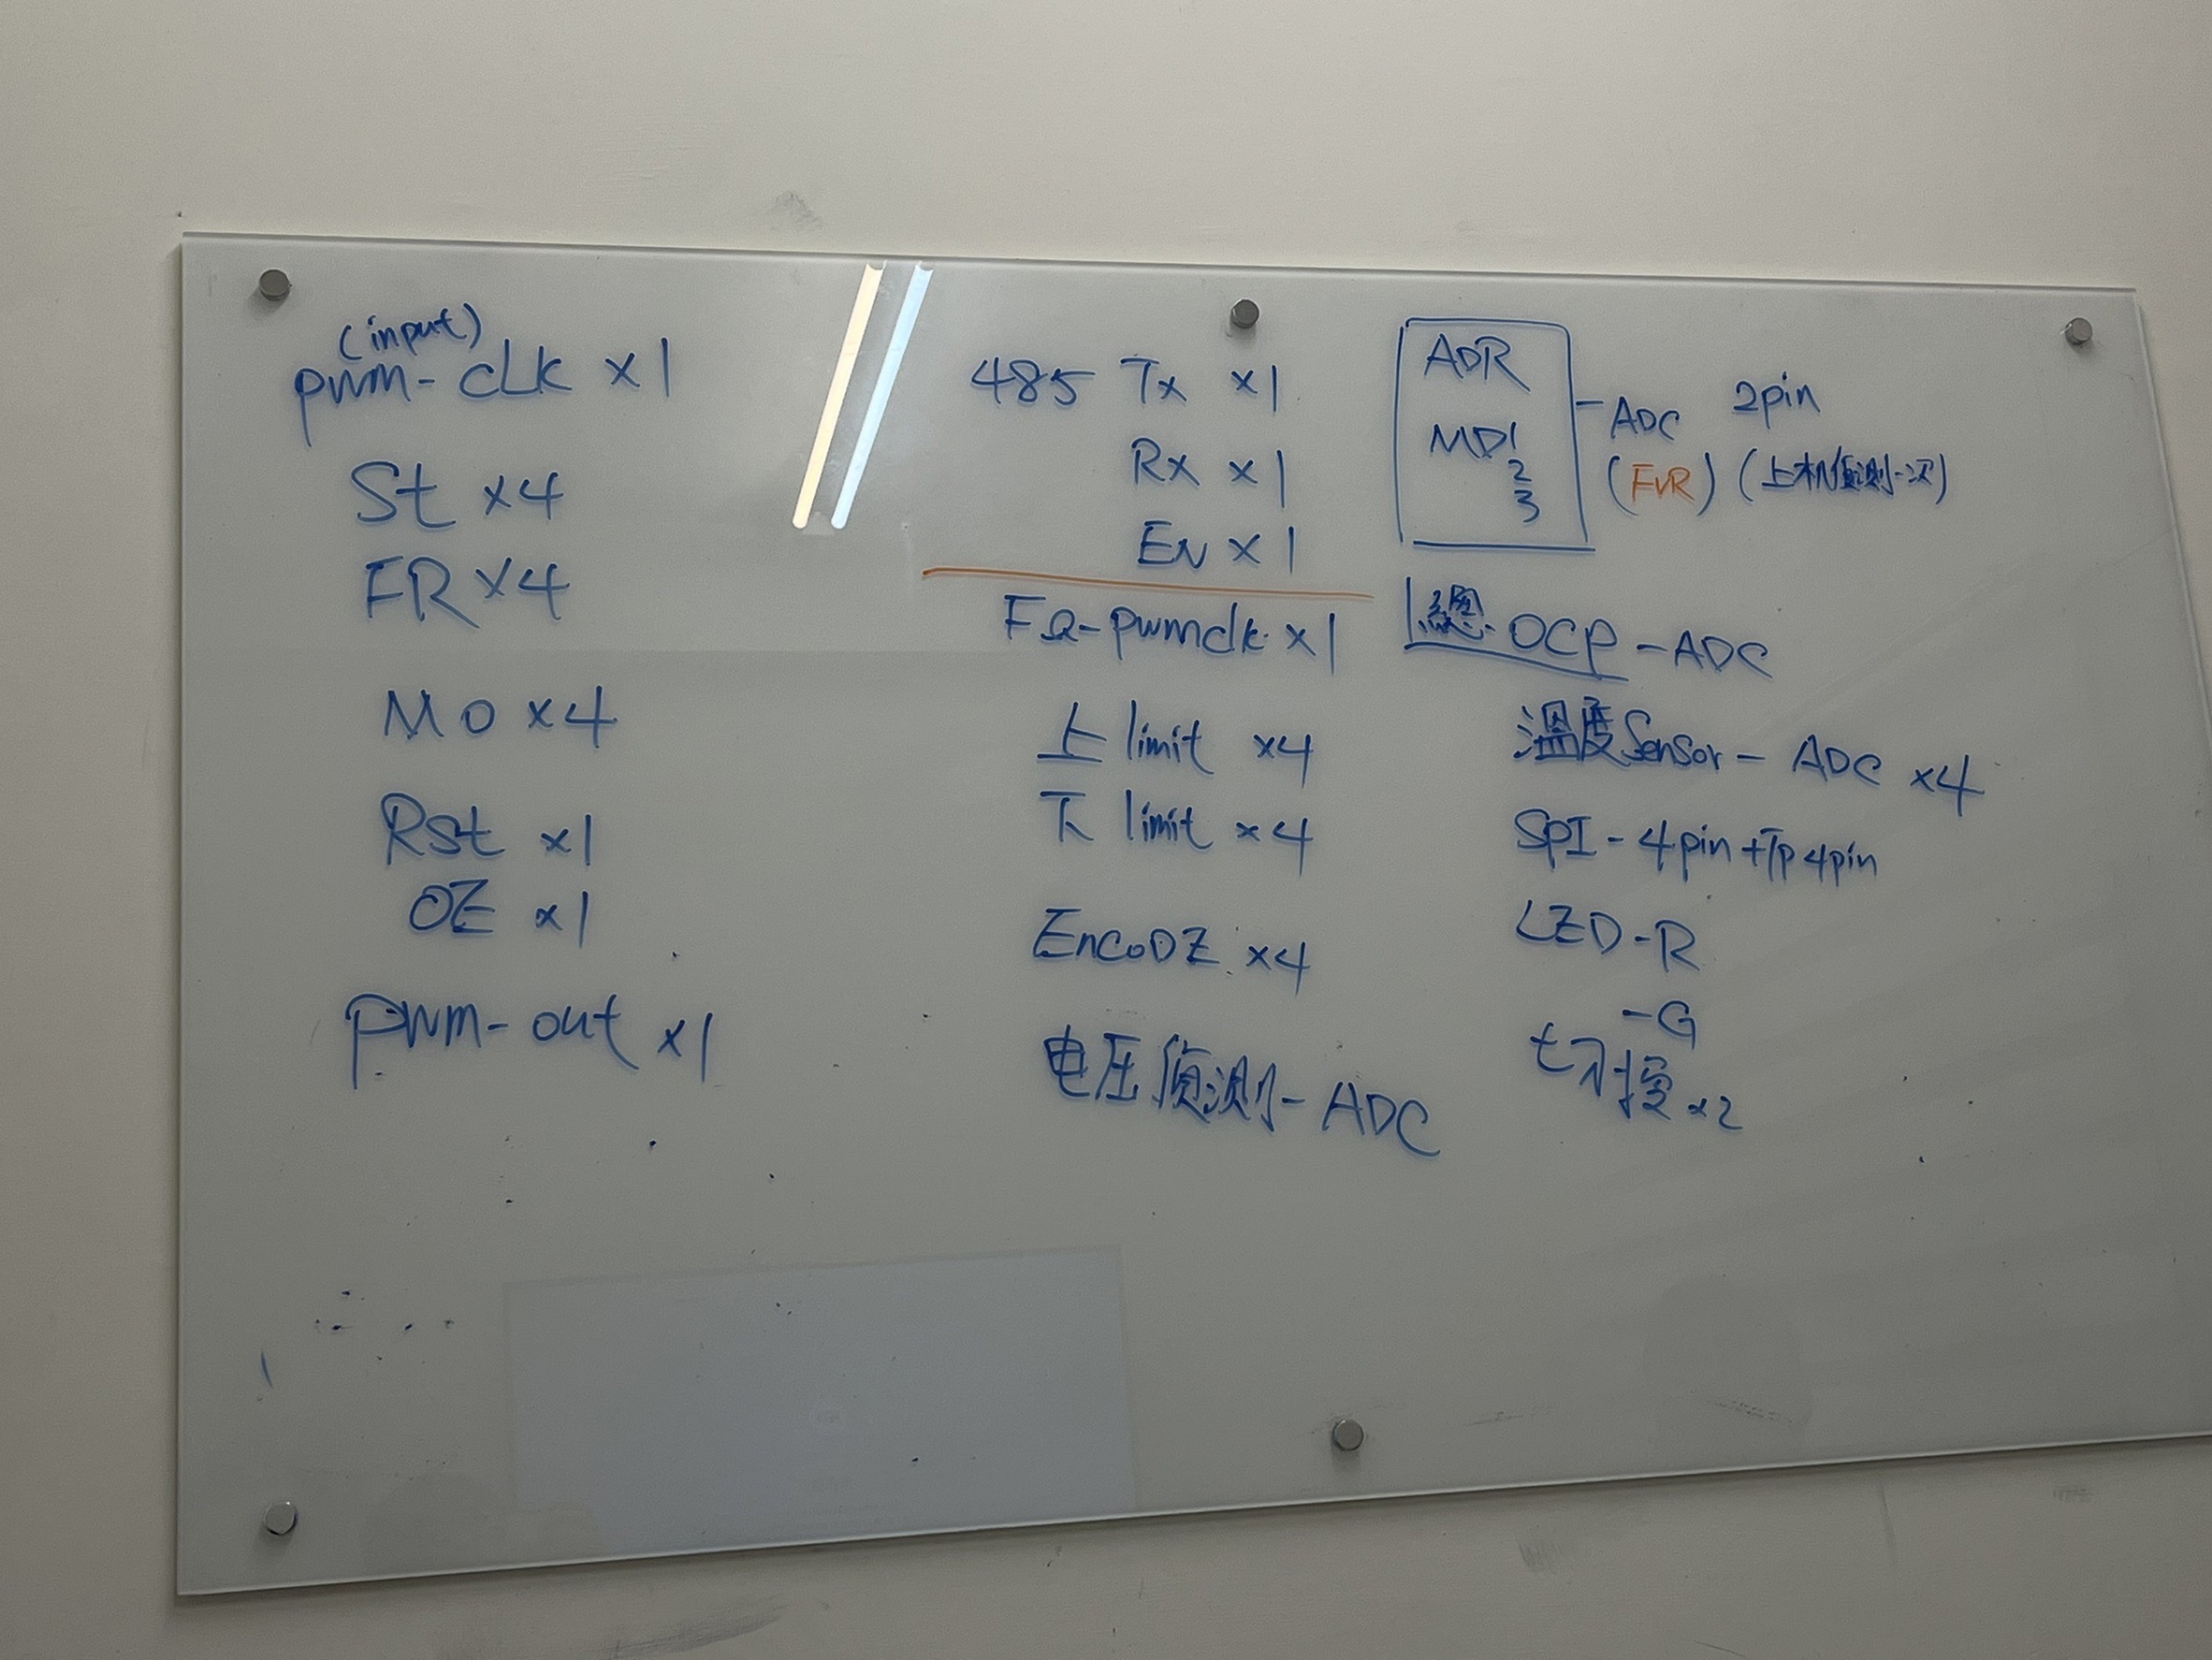 (input)
pwm-CLK ×1
St ×4
FR ×4
MO ×4
Rst ×1
OE ×1
pwm-out ×1
485 Tx ×1
Rx ×1
EN ×1
FQ-pwmclk ×1
上 limit ×4
下 limit ×4
EncoDE ×4
电压偵測-ADC
ADR
MD1
2
3
-ADC 2pin
(FVR) (上机偵測一次)
總 OCP-ADC
溫度Sensor-ADC ×4
SPI-4pin+Tp4pin
LED-R
-G
切換×2